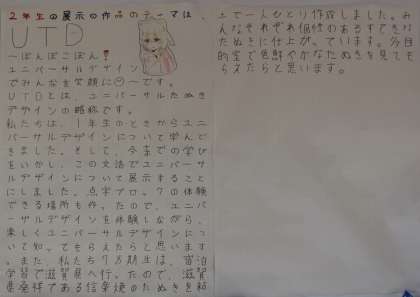 ２年生の展示の作品のテーマは、
UTD
～ぽんぽこぽん！
ユニバーサルデザイン
でみんなを笑顔に☺～です。
UTDとは、ユニバーサルたぬき
デザインの略称です。
私たちは、１年生のときからユニ
バーサルデザインについて学んで
きました。そして、今までの学び
をいかし、この文活でユニバーサ
ルデザインについて展示すること
にしました。点字ブロックの体験
できる場所も作ったので、ユニバ
ーサルデザインを体験しながら、
楽しくユニバーサルデザインにつ
いて知ってもらえたらと思います。
また、私たち７７期生は、宿泊
学習で滋賀県へ行ったので、滋賀
県発祥である信楽焼のたぬきを粘
土で一人ひとり作成しました。み
んなそれぞれ個性のあるすてきな
たぬきに仕上がっています。
的で色鮮やかなたぬきを見ても
らえたらと思います。